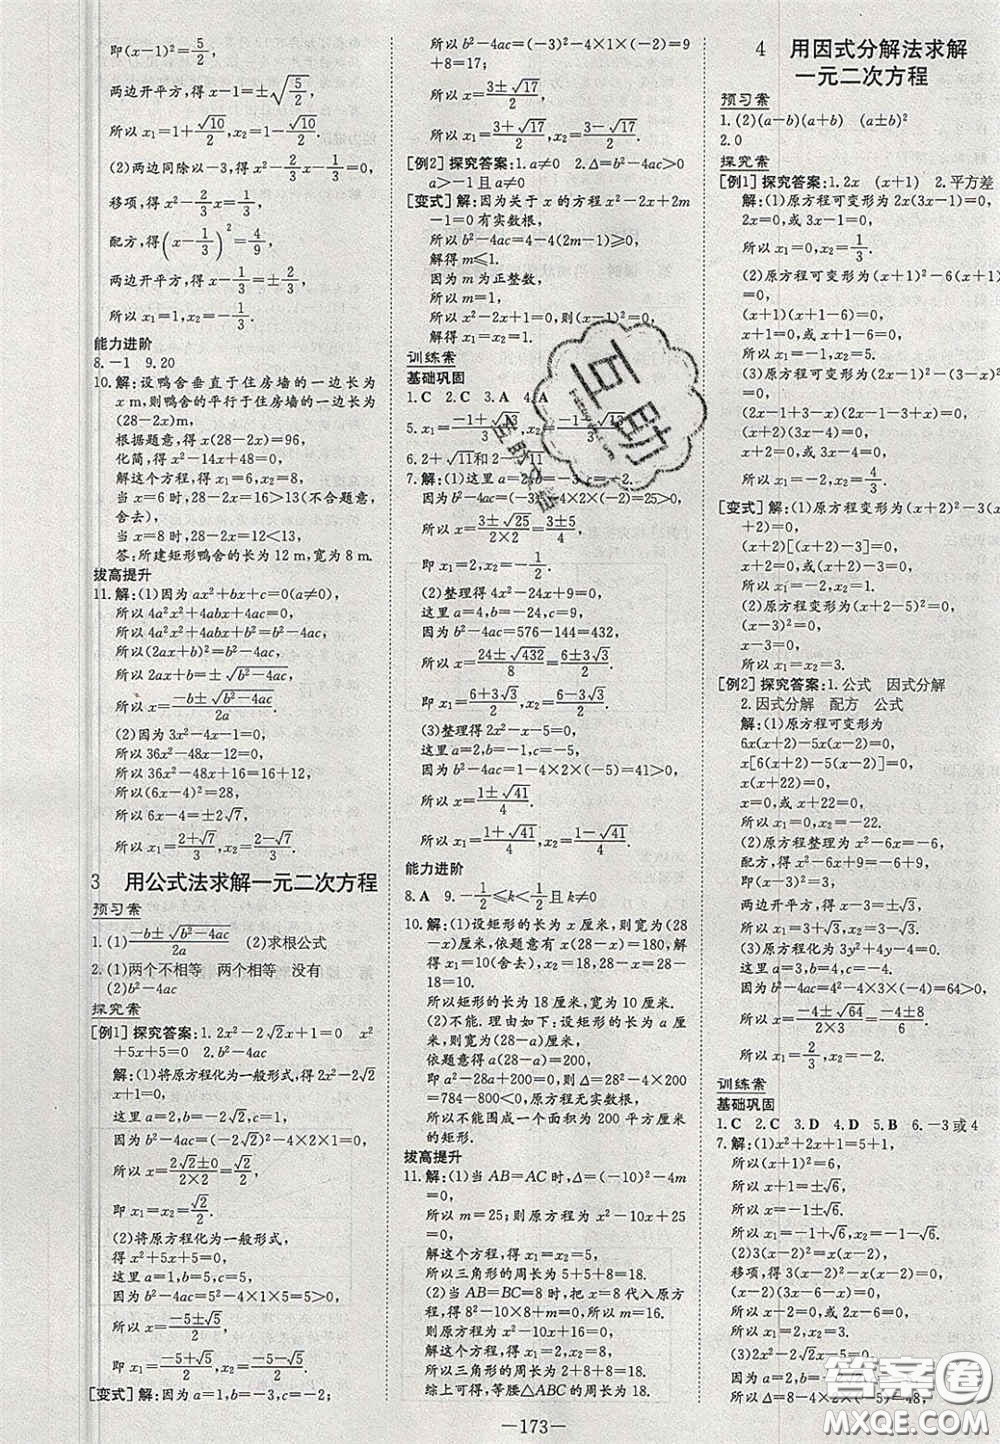 即(x-1)²=5/2,
两边开平方,得x-1=±√(5/2),
所以x₁=1+√10/2,x₂=1-√10/2.
(2)两边同除以-3,得x²-2/3x-1/3=0,
移项,得x²-2/3x=1/3,
配方,得(x-1/3)²=4/9,
两边开平方,得x-1/3=±2/3,
所以x₁=1,x₂=-1/3.
能力进阶
8.-1 9.20
10.解:设鸭舍垂直于住房墙的一边长为
x m,则鸭舍的平行于住房墙的一边长为
(28-2x)m,
根据题意,得x(28-2x)=96,
化简,得x²-14x+48=0,
解这个方程,得x₁=6,x₂=8,
当x=6时,28-2x=16>13(不合题意,
舍去),
当x=8时,28-2x=12<13,
答:所建矩形鸭舍的长为12 m,宽为8 m.
拔高提升
11.解:(1)因为ax²+bx+c=0(a≠0),
所以4a²x²+4abx+4ac=0,
所以4a²x²+4abx+b²=b²-4ac,
所以(2ax+b)²=b²-4ac,
所以2ax+b=±√(b²-4ac),
所以x=(-b±√(b²-4ac))/2a.
(2)因为3x²-4x-1=0,
所以36x²-48x-12=0,
所以36x²-48x+16=12+16,
所以(6x-4)²=28,
所以6x-4=±2√7,
所以x₁=(2+√7)/3,x₂=(2-√7)/3.
3 用公式法求解一元二次方程
预习案
1.(1)(-b±√(b²-4ac))/2a (2)求根公式
2.(1)两个不相等 两个相等 没有
(2)b²-4ac
探究案
[例1]探究答案:1.2x²-2√2x+1=0 x²
+5x+5=0 2.b²-4ac
解:(1)将原方程化为一般形式,得2x²-2√2
x+1=0,
这里a=2,b=-2√2,c=1,
因为b²-4ac=(-2√2)²-4×2×1=0,
所以x=(2√2±0)/(2×2),
即x₁=x₂=√2/2.
(2)将原方程化为一般形式,
得x²+5x+5=0,
这里a=1,b=5,c=5,
因为b²-4ac=5²-4×1×5=5>0,
所以x=(-5±√5)/2,
即x₁=(-5+√5)/2,x₂=(-5-√5)/2.
[变式]解:这里a=1,b=-3,c=-2;
所以b²-4ac=(-3)²-4×1×(-2)=9
+8=17;
所以x=(3±√17)/2,
所以x₁=(3+√17)/2,x₂=(3-√17)/2.
[例2]探究答案:1.a≠0 2.Δ=b²-4ac>0
a>-1且a≠0
[变式]解:因为关于x的方程x²-2x+2m
-1=0有实数根,
所以b²-4ac=4-4(2m-1)≥0,
解得m≤1.
因为m为正整数,
所以m=1,
所以x²-2x+2m-1=0,则(x-1)²=0,
解得x₁=x₂=1.
训练案
基础巩固
1.C 2.C 3.A 4.A
5.x₁=(-1+√13)/3,x₂=(-1-√13)/3
6.2+√11和2-√11
7.解:(1)这里a=2,b=-3,c=-2;
因为b²-4ac=(-3)²-4×2×(-2)=25>0,
所以x=(3±√25)/(2×2)=(3±5)/4,
即x₁=2,x₂=-1/2.
(2)整理得4x²-24x+9=0,
这里a=4,b=-24,c=9,
因为b²-4ac=576-144=432,
所以x=(24±√432)/8=(6±3√3)/2,
即x₁=(6+3√3)/2,x₂=(6-3√3)/2.
(3)整理得2x²-x-5=0,
这里a=2,b=-1,c=-5,
因为b²-4ac=1-4×2×(-5)=41>0,
所以x=(1±√41)/4.
所以x₁=(1+√41)/4,x₂=(1-√41)/4.
能力进阶
8.A 9.-1/2≤k<1/2
10.解:(1)设矩形的长为x厘米,则宽为(28
-x)厘米,依题意有x(28-x)=180,解得
x₁=10(舍去),x₂=18,28-x=28
-18=10.
所以矩形的长为18厘米,宽为10厘米.
(2)不能.理由如下:设矩形的长为a厘
米,则宽为(28-a)厘米,
依题意得a(28-a)=200,
即a²-28a+200=0,所以Δ=28²-4×200=
784-800<0,原方程无实数根,
所以不能围成一个面积为200平方厘米
的矩形.
拔高提升
11.解:(1)当AB=AC时,Δ=(-10)²-4m
=0,
所以m=25;则原方程为x²-10x+25
=0,
解这个方程,得x₁=x₂=5,
所以三角形的周长为5+5+8=18.
(2)当AB=BC=8时,把x=8代入原方程
得8²-10×8+m=0,所以m=16.
则原方程为x²-10x+16=0,
解这个方程,得x₁=2,x₂=8,
所以三角形的周长为2+8+8=18.
综上可得,等腰△ABC的周长为18.
4 用因式分解法求解
一元二次方程
预习案
1.(2)(a-b)(a+b) (a±b)²
2.0
探究案
[例1]探究答案:1.2x (x+1) 2.平方差
解:(1)原方程可变形为2x(3x-1)=0,
2x=0,或3x-1=0,
所以x₁=0,x₂=1/3.
(2)原方程可变形为(x+1)²-6(x+1)
=0,
(x+1)(x+1-6)=0,
x+1=0,或x-5=0,
所以x₁=-1,x₂=5.
(3)原方程可变形为(2x-1)²-(3-x)²
=0,
(x+2)(3x-4)=0,
x+2=0,或3x-4=0,
所以x₁=-2,x₂=4/3.
[变式]解:(1)原方程变形为(x+2)²-3(x
+2)=0,
(x+2)[(x+2)-3]=0,
(x+2)(x-1)=0,
所以x₁=-2,x₂=1.
(2)原方程变形为x²-6x+9=0,
(x-3)²=0,
x-3=0,
所以x₁=x₂=3.
[例2]探究答案:1.公式 因式分解
2.因式分解 配方 公式
解:(1)原方程可变形为
6x(x+2)-5x(x-10)=0,
x[6(x+2)-5(x-2)]=0,
x=0,或x+22=0,
所以x₁=0,x₂=-22.
(2)原方程整理为x²-6x=-6,
配方,得x²-6x+9=-6+9,
即(x-3)²=3,
两边开平方,得x-3=±√3,
所以x₁=3+√3,x₂=3-√3.
(3)原方程化为3y²+4y-4=0,
这里a=3,b=4,c=-4,
因为b²-4ac=4²-4×3×(-4)=64>0,
所以x=(-4±√64)/(2×3)=(-4±8)/6,
所以x₁=2/3,x₂=-2.
训练案
基础巩固
1.C 2.C 3.D 4.D 5.B 6.-3或4
7.解:(1)x²+2x+1=5+1,
所以(x+1)²=6,
所以x+1=±√6,
所以x₁=-1+√6,x₂=-1-√6.
(2)3(x-2)²=x(x-2),
移项,得3(x-2)²-x(x-2)=0,
(x-2)(2x-6)=0,
所以x₁=2,x₂=3.
(3)2x²-2√2x-5=0,
这里a=2,b=-2√2,c=-5,
所以Δ=8-4×2×(-5)=48,
—173—
互助
答案圈
MXQE.COM